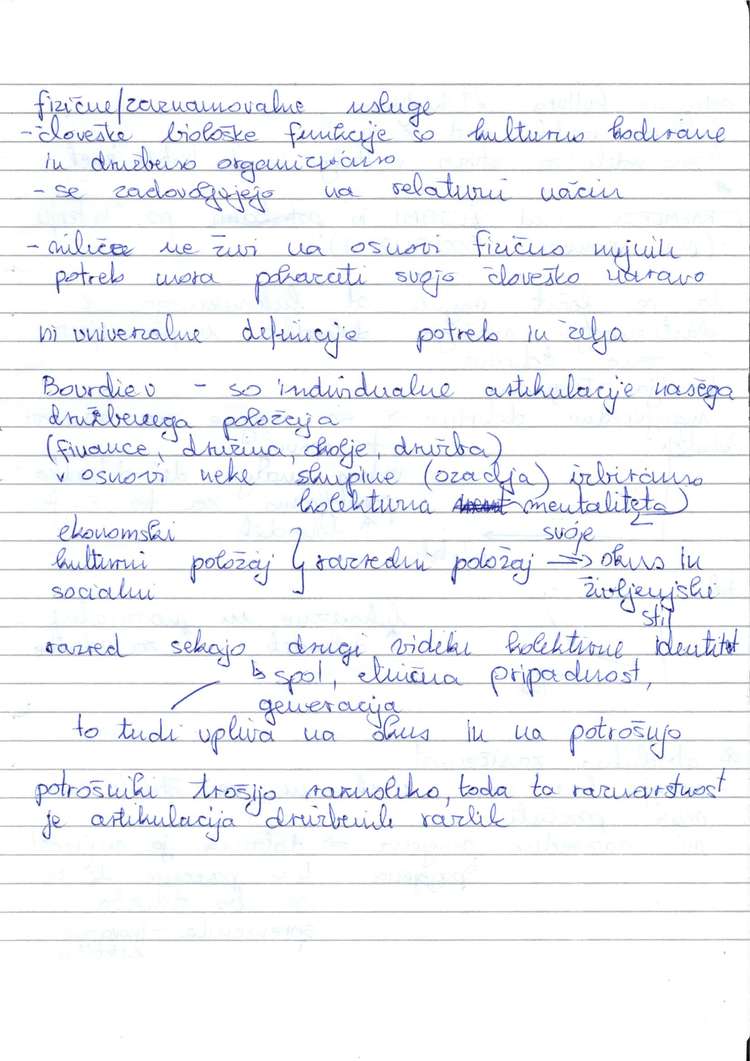 fizične/zaznamovalne usluge
- človeške biološke funkcije so kulturno kodirane
in družbeno organizirano
- se zadovoljujejo na relativni način
- nihče ne živi na osnovi fizično nujnih
potreb mora pokazati svojo človeško naravo
ni univerzalne definicije potreb in želja
Bourdieu - so individualne artikulacije našega
družbenega položaja
(finance, družina, okolje, družba)
v osnovi neke skupine (ozadja) izbiramo
kolektivna mentaliteta)
ekonomski svoje
kulturni položaj } razredni položaj => okus in
socialni življenjski
stil
razred sekajo drugi vidiki kolektivne identitet
↳ spol, etnična pripadnost,
generacija
to tudi vpliva na okus in na potrošnjo
potrošniki trošijo raznoliko, toda ta raznovrstnost
je artikulacija družbenih razlik